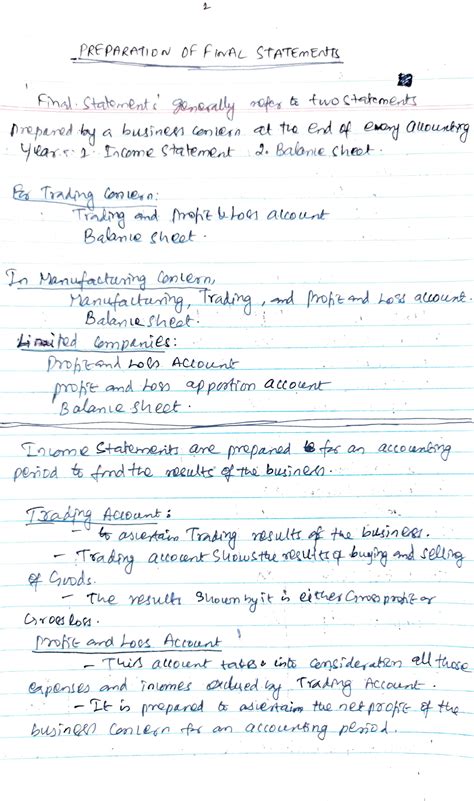 2
PREPARATION OF FINAL STATEMENTS
Final Statements generally refer to two statements
prepared by a business concern at the end of every accounting
year:- 1. Income Statement 2. Balance Sheet.
For Trading Concern:
Trading and Profit & Loss account
Balance Sheet.
In Manufacturing Concern,
Manufacturing, Trading, and Profit and Loss account.
Balance Sheet.
Limited Companies:
Profit and Loss Account
Profit and Loss apportion account
Balance Sheet.
Income Statements are prepared for an accounting
period to find the results of the business.
Trading Account:
- to ascertain Trading results of the business.
- Trading account shows the results of buying and selling
of Goods.
- The results shown by it is either Gross profit or
Gross loss.
Profit and Loss Account
- This account takes into consideration all those
expenses and incomes excluded by Trading Account.
- It is prepared to ascertain the net profit of the
business concern for an accounting period.